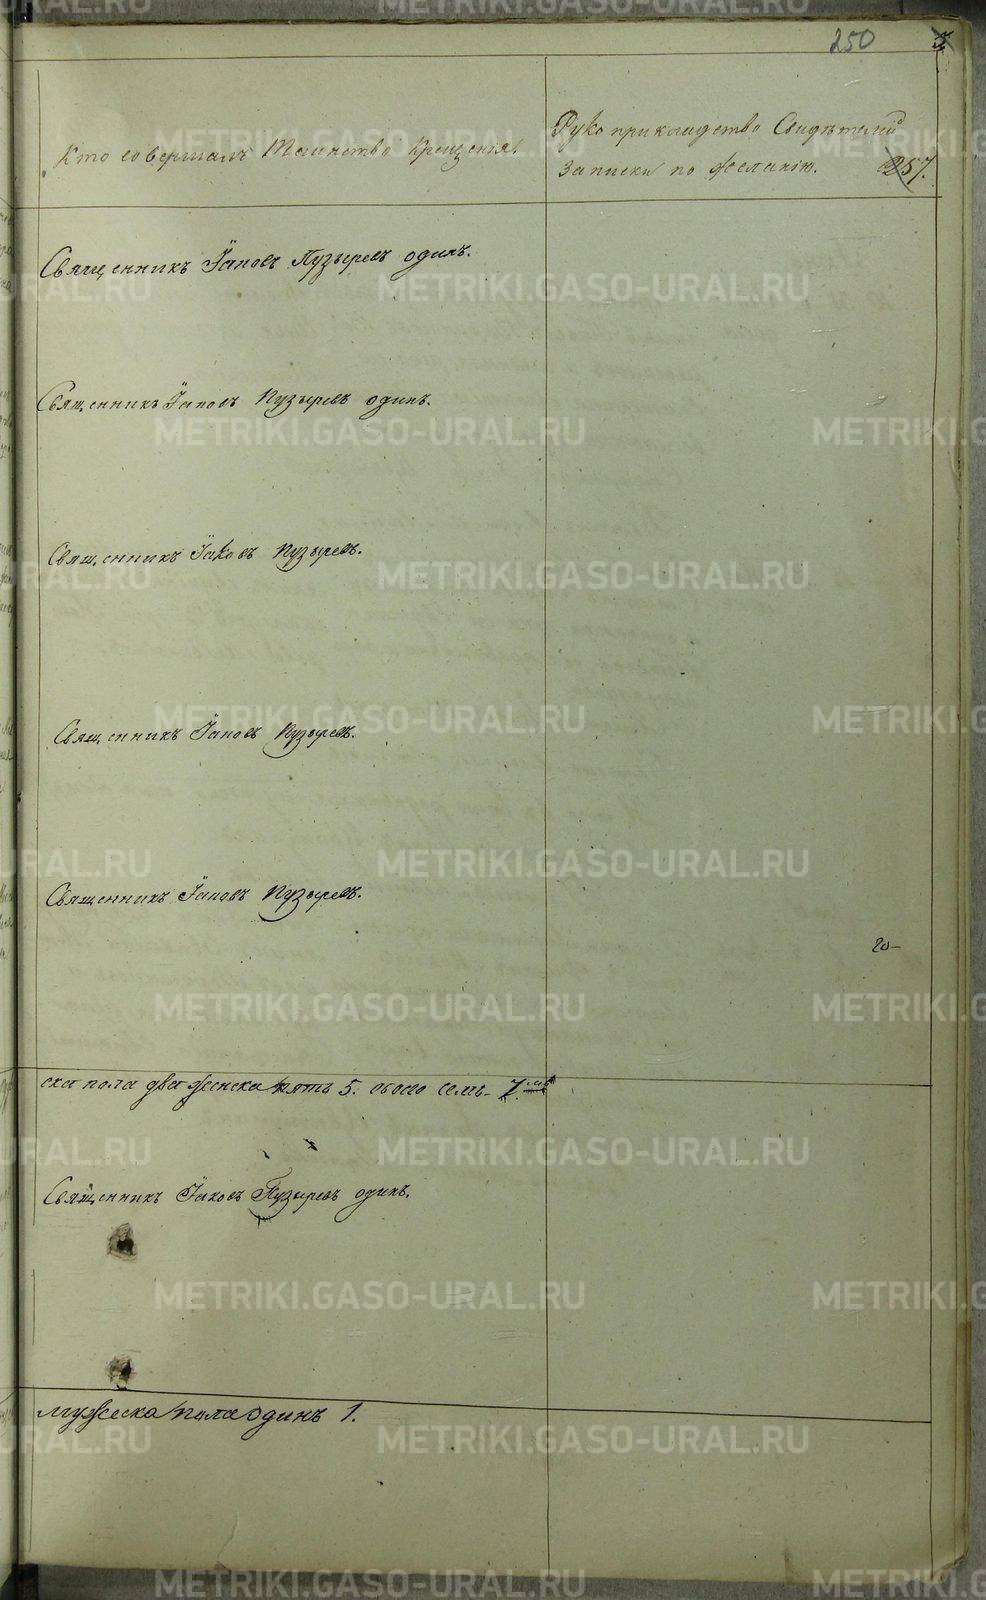 250
Кто совершалъ Таинство Крещенія.
Рукоприкладство Свидѣтелей
записки по желанію.
257.
Священникъ Іаковъ Пузыревъ одинъ.
Священникъ Іаковъ Пузыревъ одинъ.
Священникъ Іаковъ Пузыревъ.
Священникъ Іаковъ Пузыревъ.
Священникъ Іаковъ Пузыревъ.
20-
ска пола два женска пять 5. обоего семь- 7.
Священникъ Іаковъ Пузыревъ одинъ.
мужеска пола одинъ 1.
METRIKI.GASO-URAL.RU